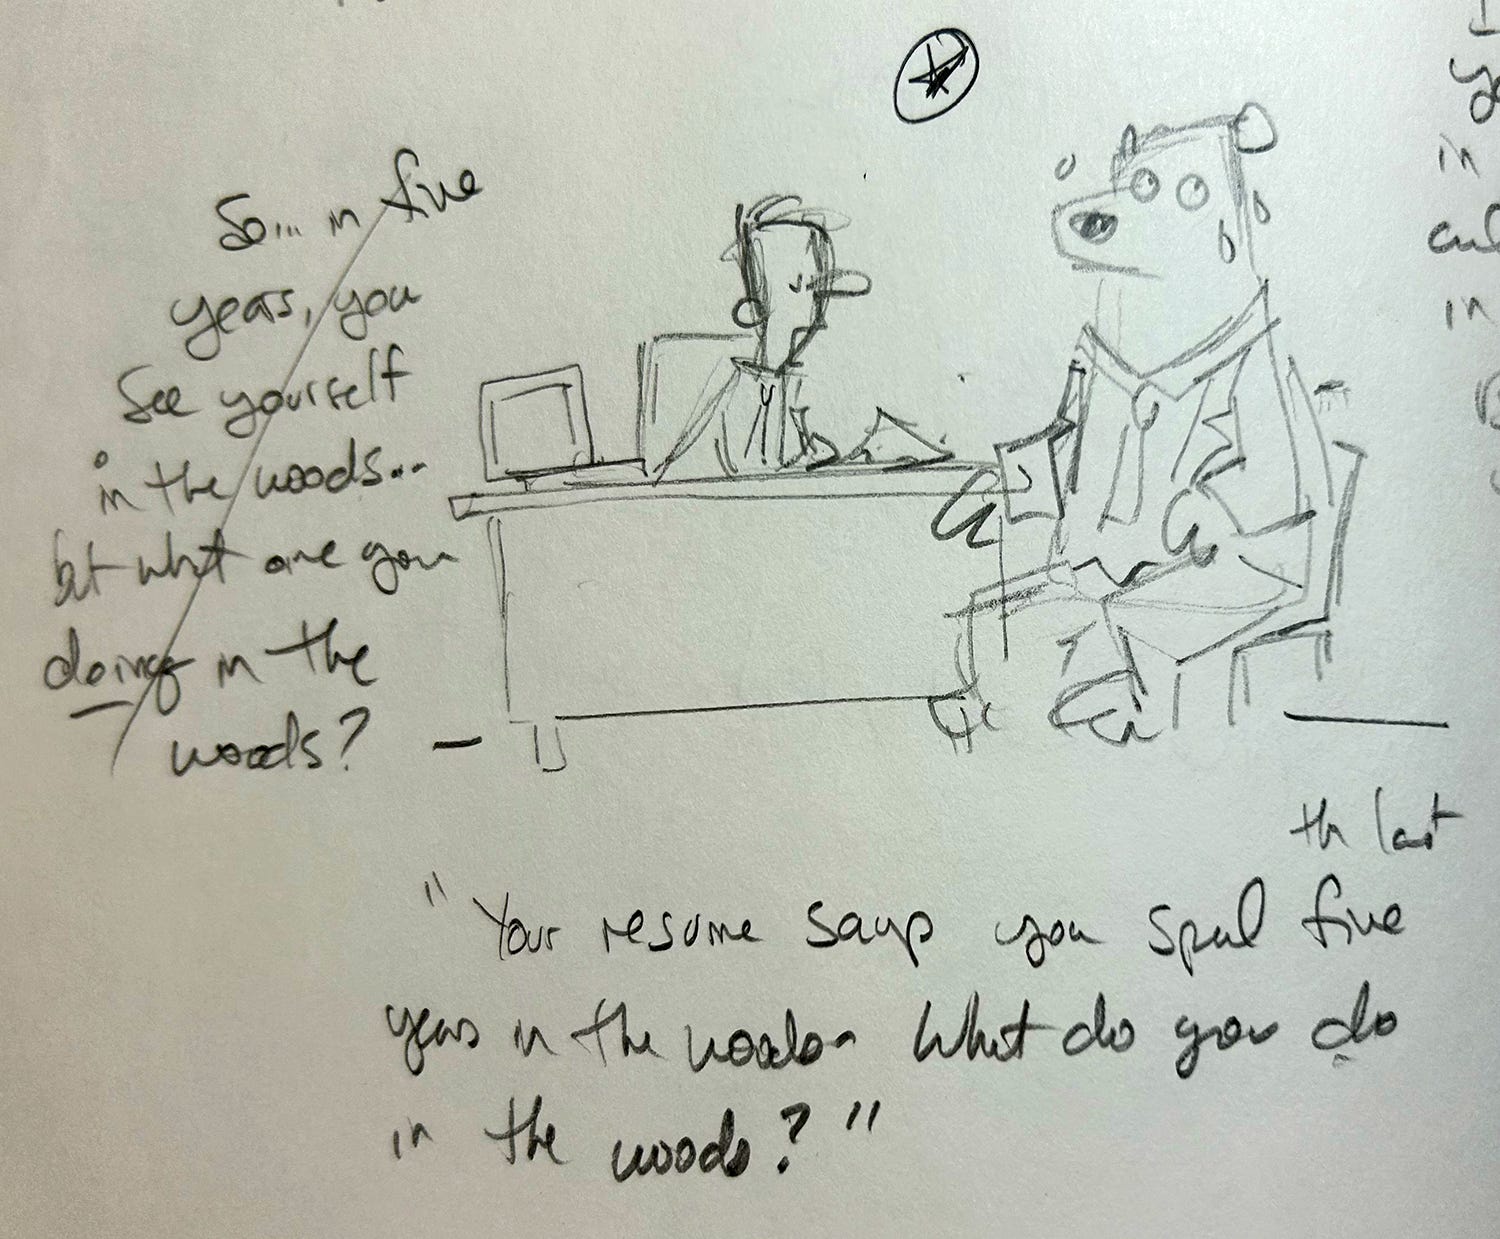 So... in five
years, you
see yourself
in the woods...
but what are you
doing in the
woods?
the last
"Your resume says you spend five
years in the woods. What do you do
in the woods?"
in
in